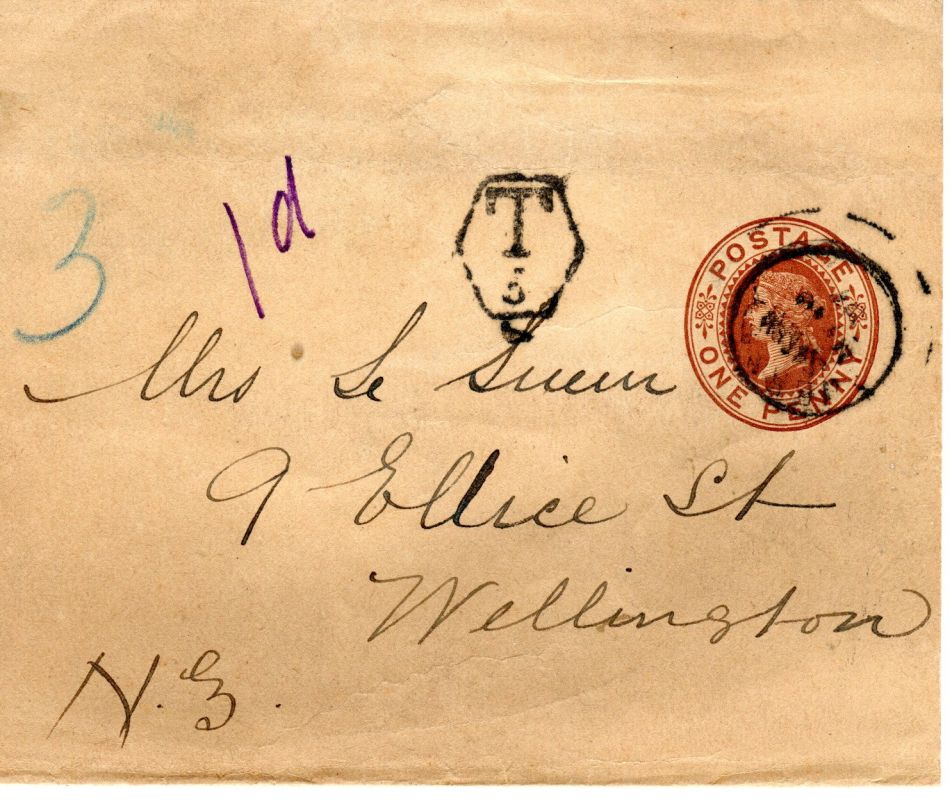 3
1d
T
5
POSTAGE
ONE PENNY
Mrs Le Sueur
9 Ellice St
Wellington
N.Z.